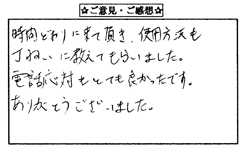 ☆ご意見・ご感想☆
時間どおりに来て頂き、使用方法も
丁ねいに教えてもらいました。
電話応対もとても良かったです。
ありがとうございました。